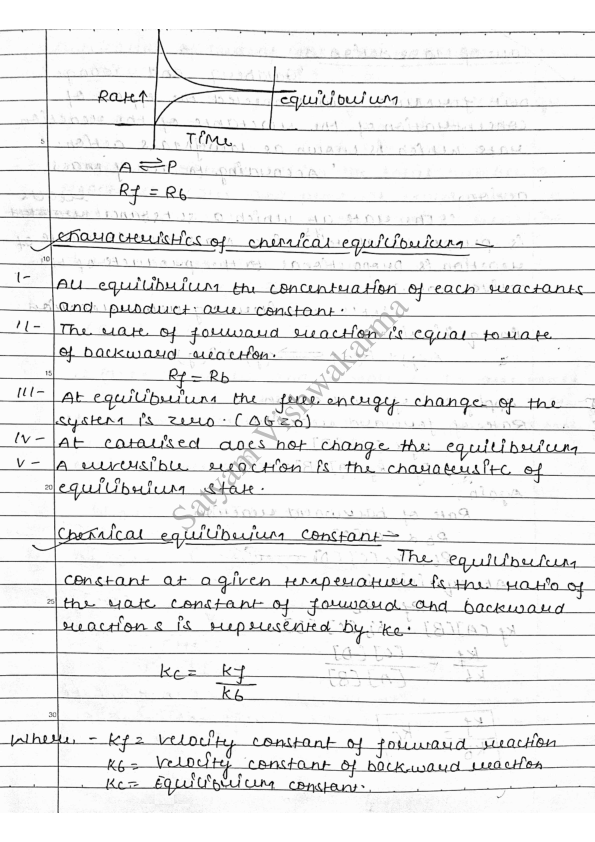 Rate↑
equilibrium
Time
A ⇌ P
Rf = Rb
characteristics of chemical equilibrium -
I- All equilibrium the concentration of each reactants
and product are constant.
II- The rate of forward reaction is equal to rate
of backward reaction.
Rf = Rb
III- At equilibrium the free energy change of the
system is zero. (ΔG=0)
IV- At catalised does not change the equilibrium
V- A reversible reaction is the charatersitc of
equilibrium state.
Chemical equilibrium constant -
The equilibrium
constant at a given temperature is the ratio of
the rate constant of forward and backward
reactions is represented by Kc.
Kc = Kf
Kb
Where - Kf = velocity constant of forward reaction
Kb = velocity constant of backward reaction
Kc = Equilibrium constant.
5
10
15
20
25
30
Satyam Vishwakarma